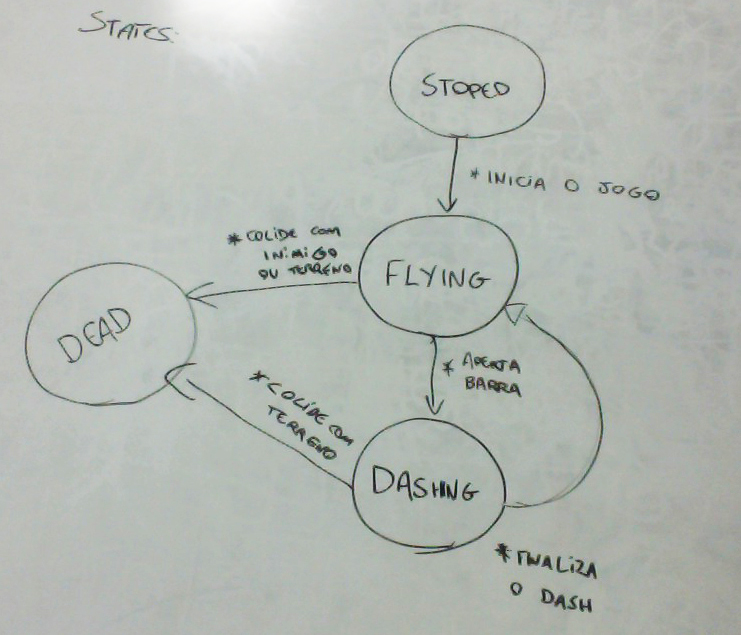 STATES:
STOPED
* INICIA O JOGO
* COLIDE COM
INIMIGO
OU TERRENO
FLYING
DEAD
* APERTA
BARRA
* COLIDE COM
TERRENO
DASHING
* FINALIZA
O DASH